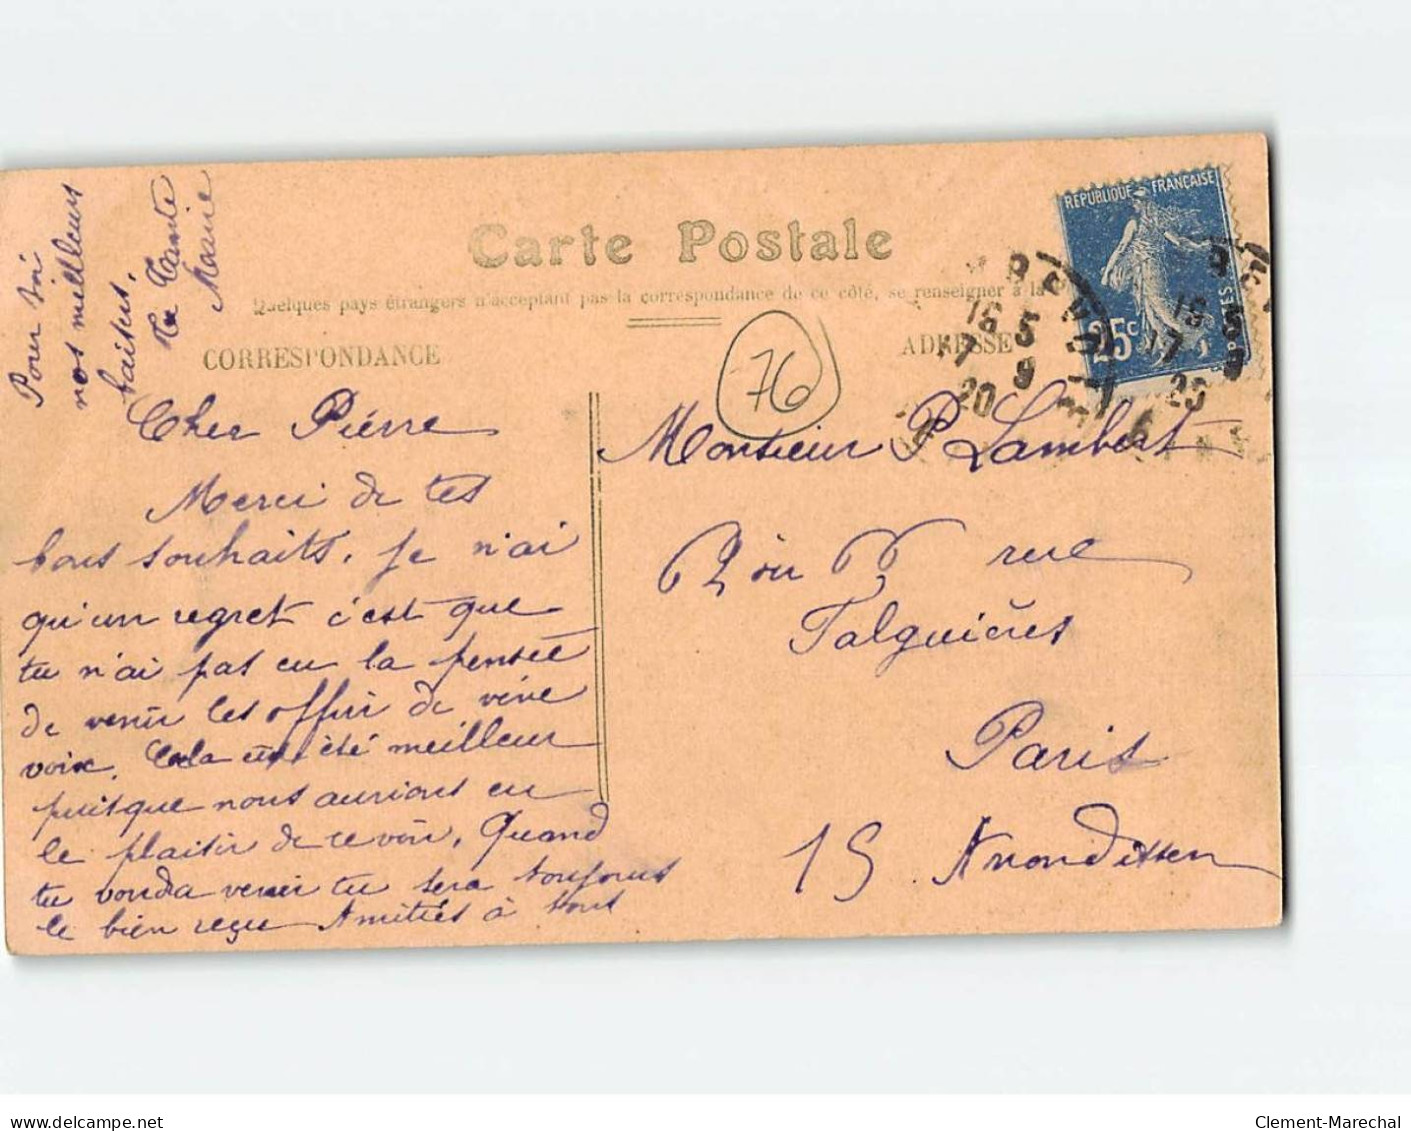 Carte Postale
Quelques pays étrangers n'acceptent pas la correspondance de ce côté, se renseigner à la
CORRESPONDANCE
ADRESSE
REPUBLIQUE FRANÇAISE
POSTES
25c
16 5
17 9
20
16 5
17
20
76
Pour toi
nos meilleurs
baisers.
Ta Tante
Marie
Cher Piérre
Merci de tes
bons souhaits. Je n'ai
qu'un regret c'est que
tu n'ai pas eu la pensée
de venir les offrir de vive
voix. Cela eut été meilleur
puisque nous aurions eu
le plaisir de te voir. Quand
tu voudra venir tu sera toujours
le bien reçu Amitiés à tous
Monsieur P Lambert
rue
Falguières
Paris
15 Arrondissen
delcampe.net
Clement-Marechal